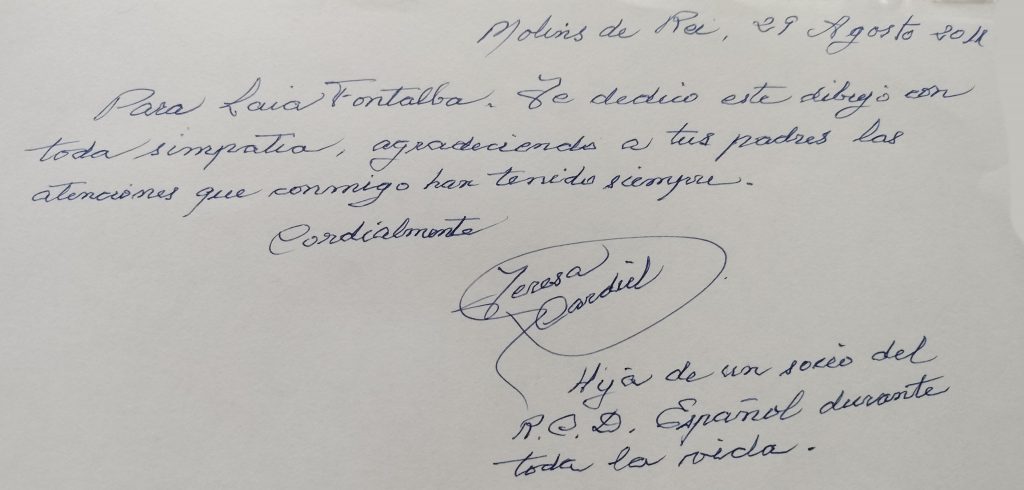 Molins de Rei, 29 Agosto 2011
Para Laia Fontalba. Te dedico este dibujo con
toda simpatia, agradeciendo a tus padres las
atenciones que conmigo han tenido siempre.
Cordialmente
Teresa
Cardiel
Hija de un socio del
R.C.D. Español durante
toda la vida.